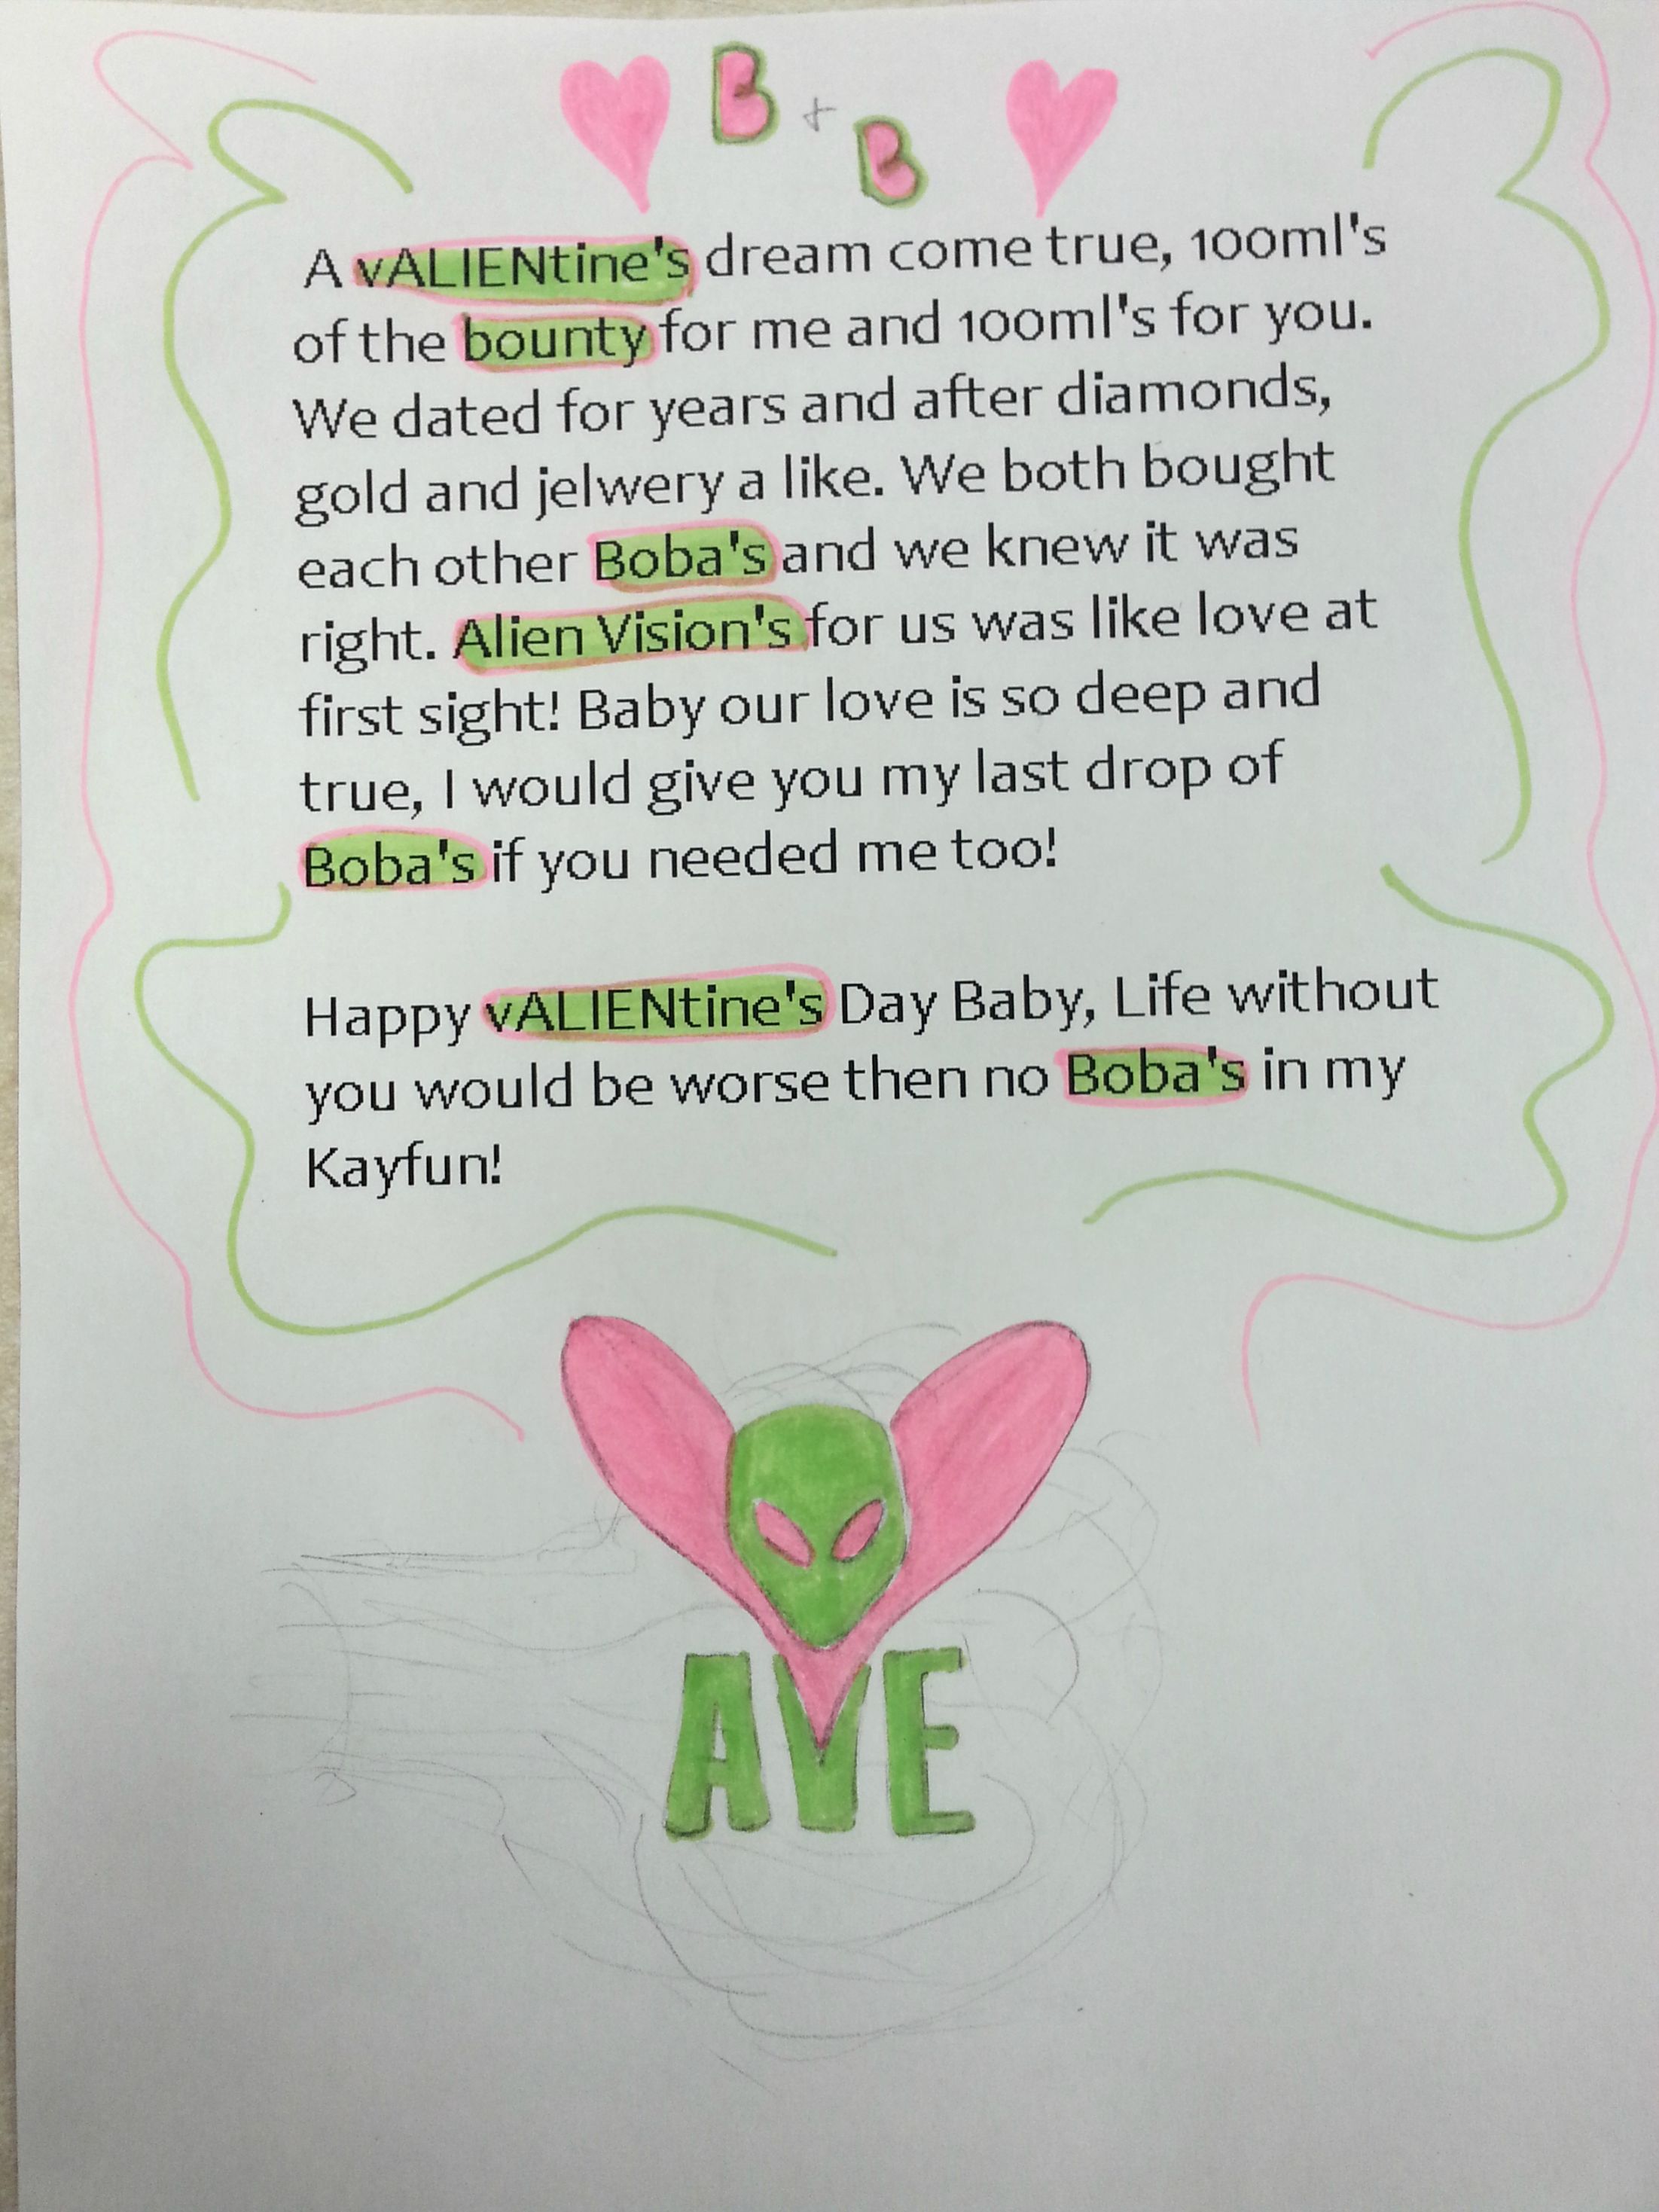 B + B
A vALIENtine's dream come true, 100ml's
of the bounty for me and 100ml's for you.
We dated for years and after diamonds,
gold and jelwery a like. We both bought
each other Boba's and we knew it was
right. Alien Vision's for us was like love at
first sight! Baby our love is so deep and
true, I would give you my last drop of
Boba's if you needed me too!
Happy vALIENtine's Day Baby, Life without
you would be worse then no Boba's in my
Kayfun!
AVE